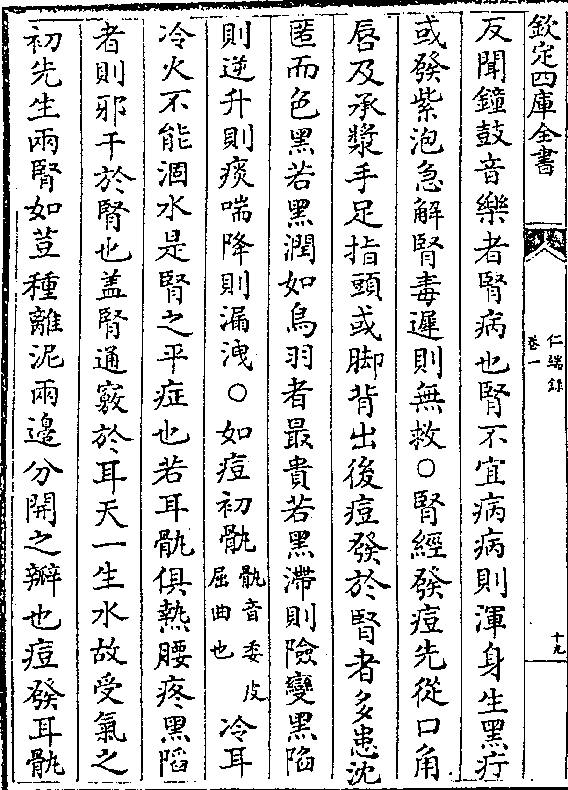 欽定四庫全書
仁端錄
卷一
十九
反聞鐘鼓音樂者腎病也腎不宜病病則渾身生黑疔
或發紫泡急解腎毒遲則無救○腎經發痘先從口角
唇及承漿手足指頭或脚背出後痘發於腎者多患沈
匿而色黑若黑潤如烏羽者最貴若黑滯則險變黑陷
則逆升則痰喘降則漏洩○如痘初骩骩音委皮屈曲也冷耳
冷火不能涸水是腎之平症也若耳骩俱熱腰疼黑陷
者則邪干於腎也盖腎通竅於耳天一生水故受氣之
初先生兩腎如荳種離泥兩邊分開之瓣也痘發耳骩